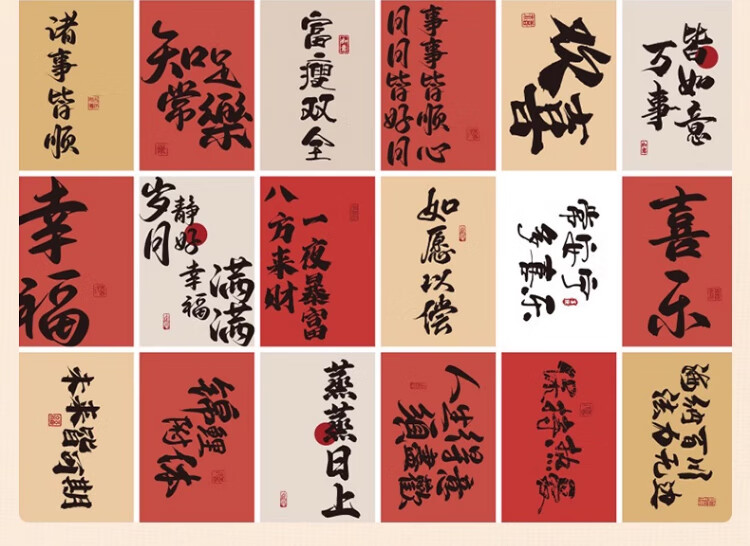 诸事皆顺
知足
常樂
富瘦双全
事事皆顺心
日日皆好日
欢喜
万事
皆如意
幸福
岁月
静好
幸福
满满
一夜暴富
八方来财
如愿以偿
常安宁
多喜乐
喜乐
未来皆可期
锦鲤
附体
蒸蒸日上
人生得意
须盡歡
保持热爱
海纳百川
法力无边